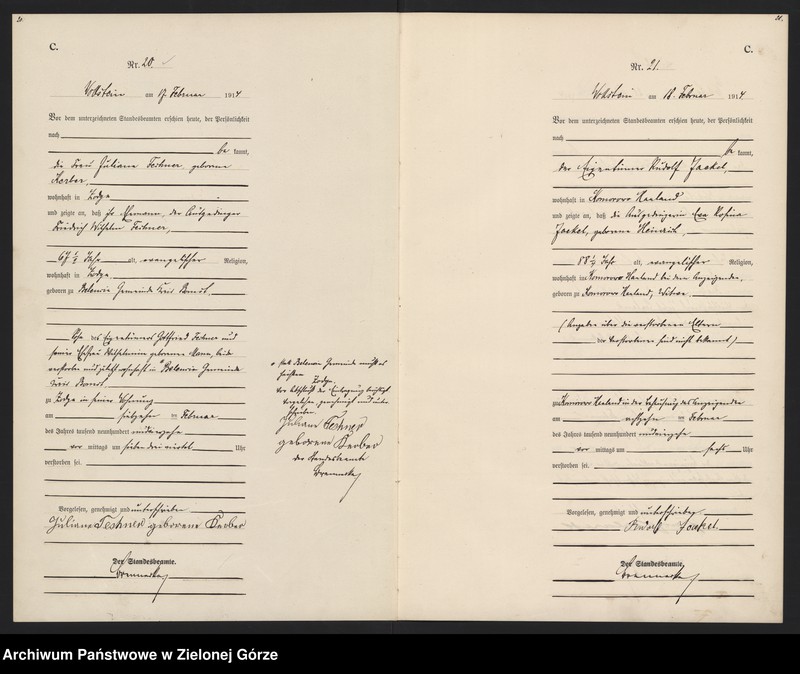 21.
C.
Nr. 20.
Wollstein am 17. Februar 1914
Vor dem unterzeichneten Standesbeamten erschien heute, der Persönlichkeit
nach
be kannt,
die Frau Juliane Fechner, geborene
Kerber,
wohnhaft in
und zeigte an, daß ihr Ehemann, der
Friedrich Wilhelm Fechner,
67 1/2 Jahr alt, evangelischer Religion,
wohnhaft in
geboren zu Gemeinde Kreis Bomst,
Sohn des Eigentümers Gottfried Fechner und
seiner Ehefrau Wilhelmine geborene beide
verstorben und zuletzt wohnhaft in Gemeinde
Kreis Bomst
zu in seiner Wohnung
am siebzehnten Februar
des Jahres tausend neunhundert und vierzehn
vor mittags um sieben drei viertel Uhr
verstorben sei.
Vorgelesen, genehmigt und unterschrieben
Juliane Fechner geborene Kerber
Der Standesbeamte.
statt Gemeinde muß es
heißen
vor Abschluß der Eintragung
Vorgelesen, genehmigt und unter-
schrieben
Juliane Fechner
geborene Kerber
Der Standesbeamte
21.
C.
Nr. 21.
Wollstein am 18. Februar 1914.
Vor dem unterzeichneten Standesbeamten erschien heute, der Persönlichkeit
nach
be kannt,
der Eigentümer Rudolf Jaekel,
wohnhaft in Komorowo Hauland
und zeigte an, daß die Ausgedingerin Eva Rosina
Jaekel, geborene Heinrich,
alt, evangelischer Religion,
wohnhaft in Komorowo Hauland bei dem Anzeigenden,
geboren zu Komorowo Hauland, Witwe,
(Angaben über die verstorbenen Eltern
der Verstorbenen sind nicht bekannt)
zu Komorowo Hauland in der Behausung des Anzeigenden
am achtzehnten Februar
des Jahres tausend neunhundert und vierzehn
vor mittags um sechs Uhr
verstorben sei.
Vorgelesen, genehmigt und unterschrieben
Rudolf Jaekel
Der Standesbeamte.
Archiwum Państwowe w Zielonej Górze